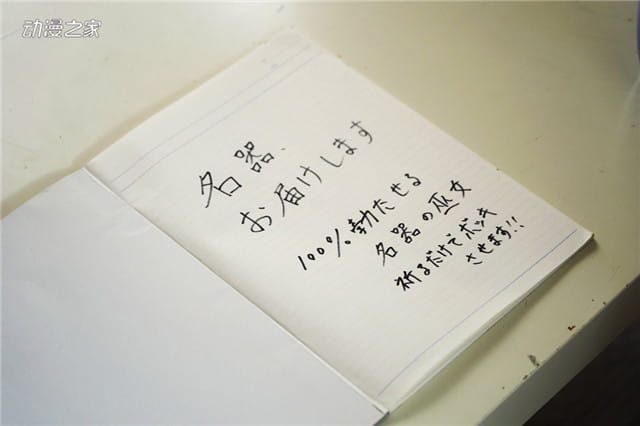 动漫之家
名器、
お届けします
100%勃たせる
名器の巫女
祈るだけでボッキ
させます!!